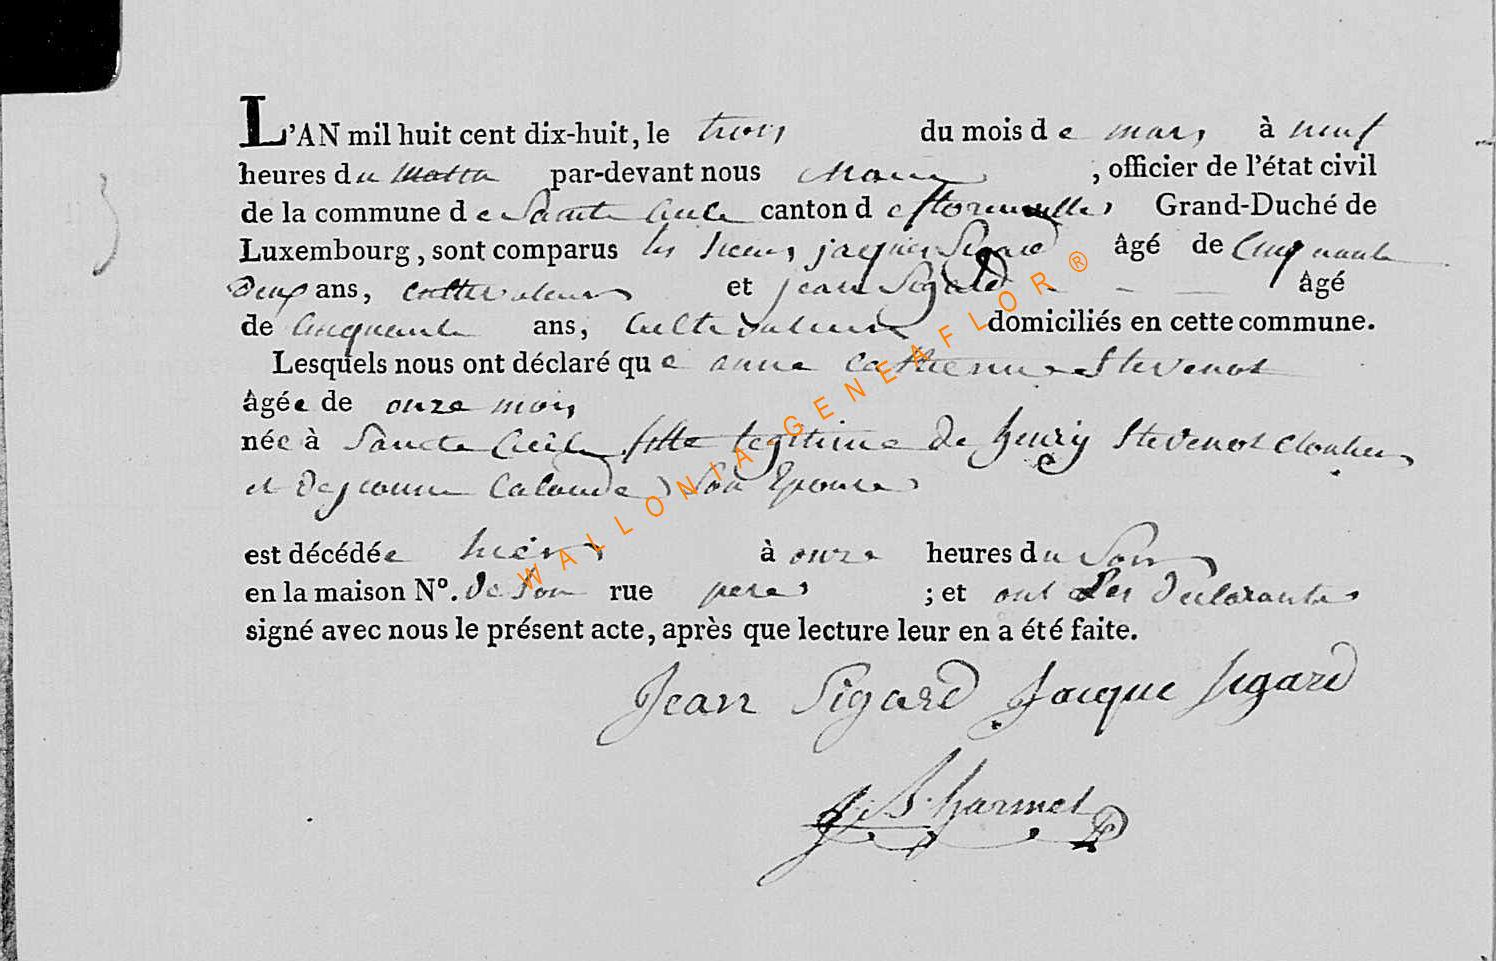 3
L'AN mil huit cent dix-huit, le trois du mois de mars, à neuf
heures du matin par-devant nous Maire, officier de l'état civil
de la commune de Sainte Cecile canton de florenville, Grand-Duché de
Luxembourg, sont comparus les sieurs jacques Sigard âgé de Cinquante
Deux ans, cultivateur et jean Sigard âgé
de Cinquante ans, Cultivateur domiciliés en cette commune.
Lesquels nous ont déclaré que anne catherine Stevenot
âgée de onze mois
née à Saincte Cecile fille legitime de henry Stevenot cloutier,
et De jeanne Calande, son Epouse,
est décédée hier, à onze heures du Soir
en la maison N°. de son rue pere, ; et ont Les Declarants,
signé avec nous le présent acte, après que lecture leur en a été faite.
Jean Sigard Jacque Sigard
J.B. harmel
WALLONIA-GENEAFLOR®